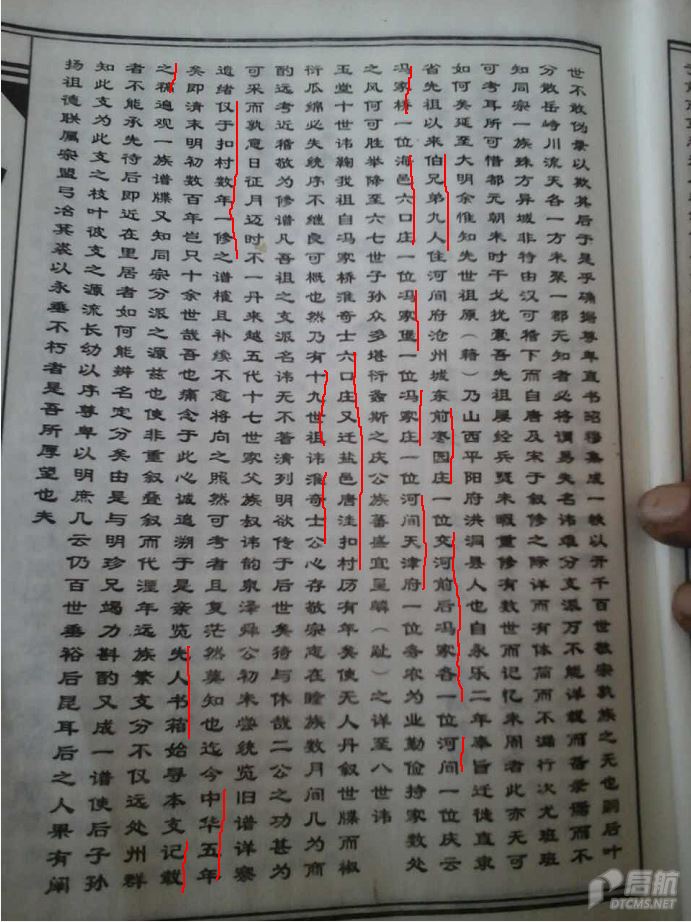 世不敢伪录以欺其后于是乎确据尊年直书昭穆集成一帙以开千百世敬宗敦族之无也嗣后叶
分散岳峙川流天各一方未聚一郡无知者必将谓易失名讳难分支派万不能详载而备录儒而不
知同宗一族殊方异域非特由汉可稽下而自唐及宋于叙修之际详而有体简而不漏行次尤班班
可考耳所可惜都元朝末时干戈扰囊吾先祖屡经兵燹未暇重修有数世而记忆未周者此亦无可
如何矣延至大明余惟知先世祖原（籍）乃山西平阳府洪洞县人也自永乐二年奉旨迁徙直隶
省先祖以来伯兄弟九人住河间府沧州城东前枣园庄一位交河前后冯家各一位河间一位庆云
冯家桥一位海邑六口庄一位冯家堡一位冯家庄一位河间天津府一位务农为业勤俭持家数处
之风何可胜举降至六七世子孙众多堪衍螽斯之庆公族蕃盛宜呈麟（趾）之详至八世讳
玉堂十世讳鞠我祖自冯家桥淮奇士六口庄又迁盐邑唐洼扣村历有年矣使无人丹叙世牒而椒
衍瓜绵必失统序不继良可概也然乃有十九世祖讳淮奇士公心存敬宗志在睦族数月间几为商
酌远考近稽敬为修谱凡吾祖之支派名讳无不著清列明欲传于后世矣猗与休哉二公之功甚为
可采而孰意日征月迈时不一丹来越五代十七世家父族叔讳韵泉泽舜公初未尝统览旧谱详察
遗绪仅于扣村数年一修之谱楦且补续不愈将向之照然可考者且复茫然莫知也迄今中华五年
矣即清末明初数百年岂只十余世哉吾也痛念于此心诚追溯于是亲览先人书箱始寻本支记载
之稿追观一族谱牒又知同宗分派之源兹也使非重叙叠叙而代湮年远族繁支分不仅远处州群
者不能承先待后即近在里居者如何能辨名定分矣由是与明珍兄竭力斟酌又成一谱使后子孙
知此支为此支之枝叶彼支之源流长幼以序尊卑以明庶几云仍百世垂裕后昆耳后之人果有阐
扬祖德联属宗盟弓冶箕裘以永垂不朽者是吾所厚望也夫
启航
DTCMS.NET